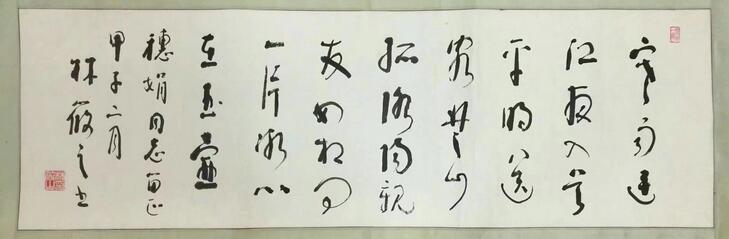 寒雨連
江夜入吳
平明送
客楚山
孤洛陽親
友如相问
一片冰心
在玉壺
穗娟同志正
甲子二月
林筱之书